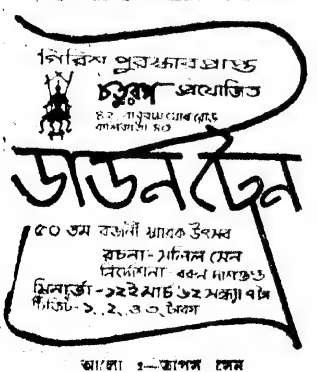 গিরিশ পুরস্কারপ্রাপ্ত
চতুরঙ্গ প্রযোজিত
৪২
ডাউন ট্রেন
৫০ তম রজনী স্মারক উৎসব
রচনা - সলিল সেন
নির্দেশনা - বরুন দাশগুপ্ত
মিনার্ভা - ১২ই মার্চ ৬২ সন্ধ্যা ৭টা
টিকিট - ১, ২, ও ৩, টাকা
আলো :- তাপস সেন